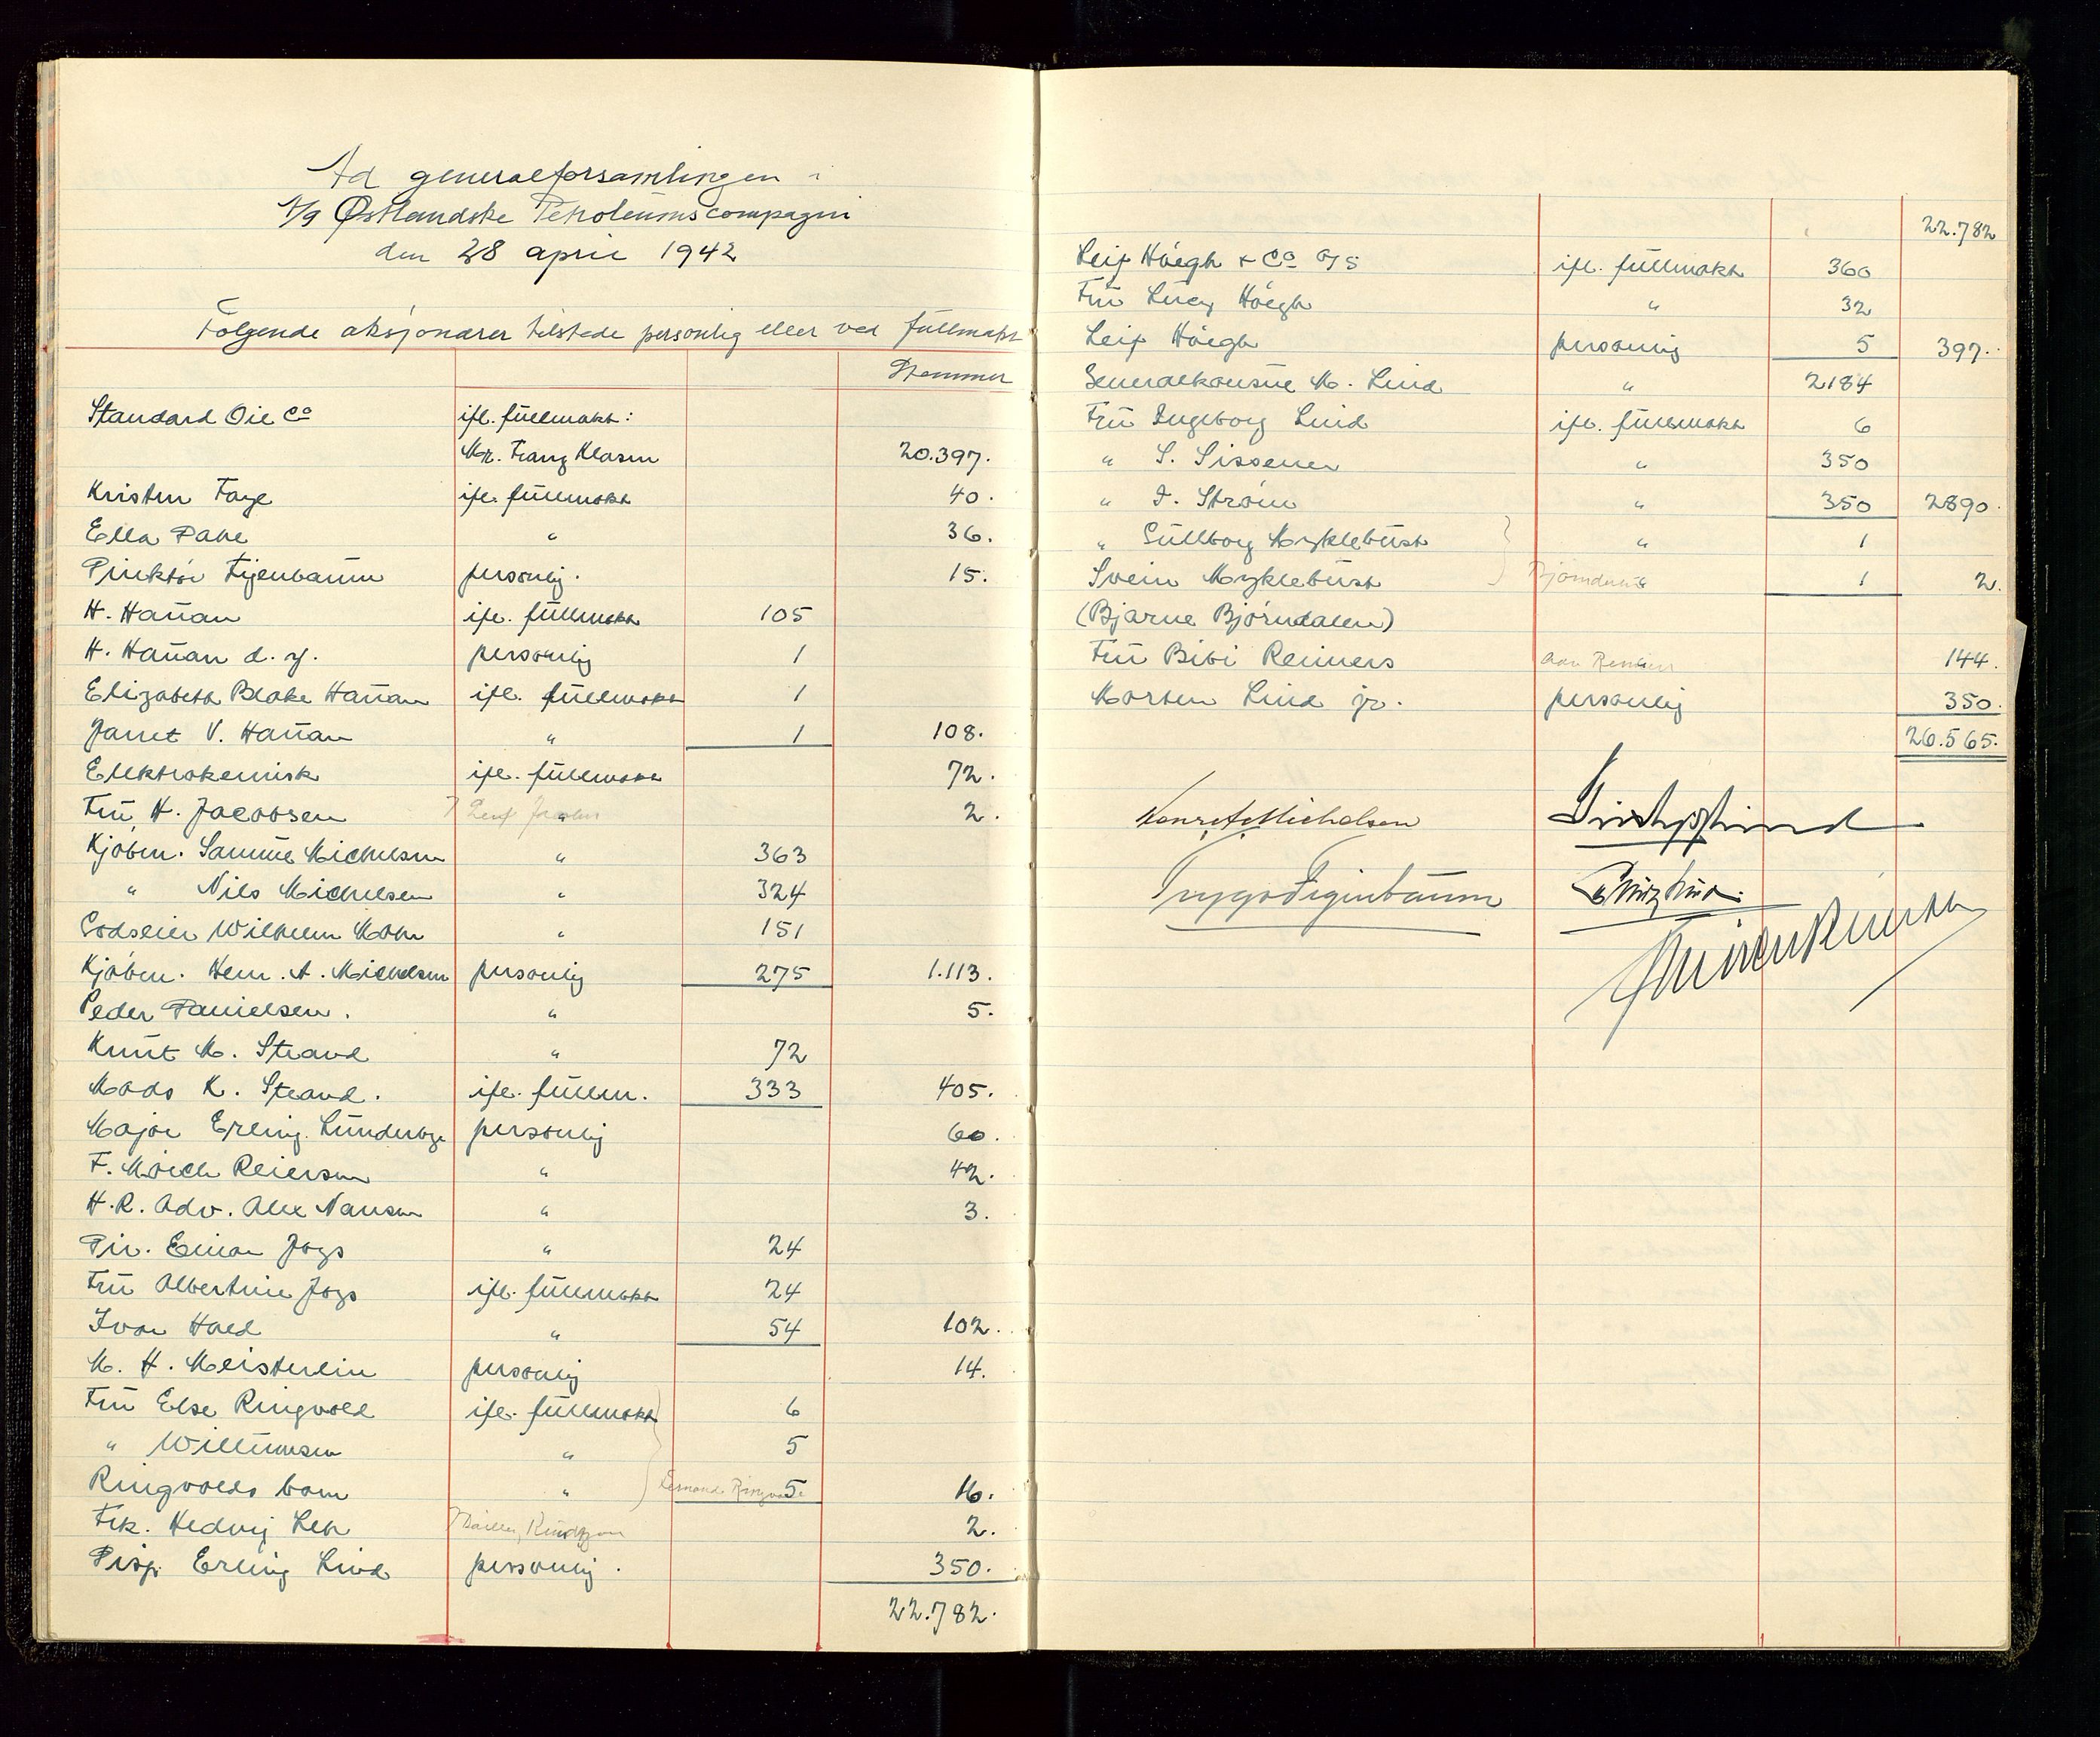 Ad generalforsamlingen i
A/S Østlandske Petroleumscompagni
den 28 april 1942
Følgende aksjonærer tilstede personlig eller ved fullmakt
Stemmer
Standard Oil Co ifl. fullmakt:
Mr. Franz Klasen 20.397.
Kristen Faye ifl. fullmakt 40.
Ella Dahl " 36.
Direktør Figenbaum personlig. 15.
H. Hanan ifl. fullmakt 105
H. Hanan d. y. personlig 1
Elizabeth Blake Hanan ifl. fullmakt 1
Janet V. Hanan " 1 108.
Elektrokemisk ifl. fullmakt 72.
Fru H. Jacobsen " 2.
Kjøbm. Samuel Michelsen " 363
" Nils Michelsen " 324
Godseier Wilhelm Mohr " 151
Kjøbm. Henr. A. Michelsen personlig 275 1.113.
Peder Danielsen. " 5.
Knut M. Strand " 72
Mads K. Strand. ifl. fullm. 333 405.
Major Erling Lunderbye personlig 60.
F. Mörch Reiersen " 42.
H.R. Adv. Alex Nansen " 3.
Dir. Einar Jogs " 24
Fru Albertine Jogs ifl. fullmakt 24
Ivar Hald " 54 102.
M. H. Meisterlin personlig 14.
Fru Else Ringvold ifl. fullmakt 6
" Willumsen " 5
Ringvolds barn " 5 16.
Frk. Hedvig Leh 2.
Disp. Erling Lind personlig. 350.
22.782.
22.782
Leif Höegh & Co A/S ifl. fullmakt 360
Fru Lucy Höegh " 32
Leif Höegh personlig 5 397.
Generalkonsul M. Lind " 2184
Fru Ingeborg Lind ifl. fullmakt 6
" S. Sissener " 350
" I. Ström " 350 2890.
" Gullborg Myklebust " 1
Svein Myklebust " 1 2.
(Bjarne Björndalen)
Fru Bibi Reimers 144.
Morten Lind jr. personlig 350.
26.565.
Henrik A Michelsen
Trygve Figenbaum